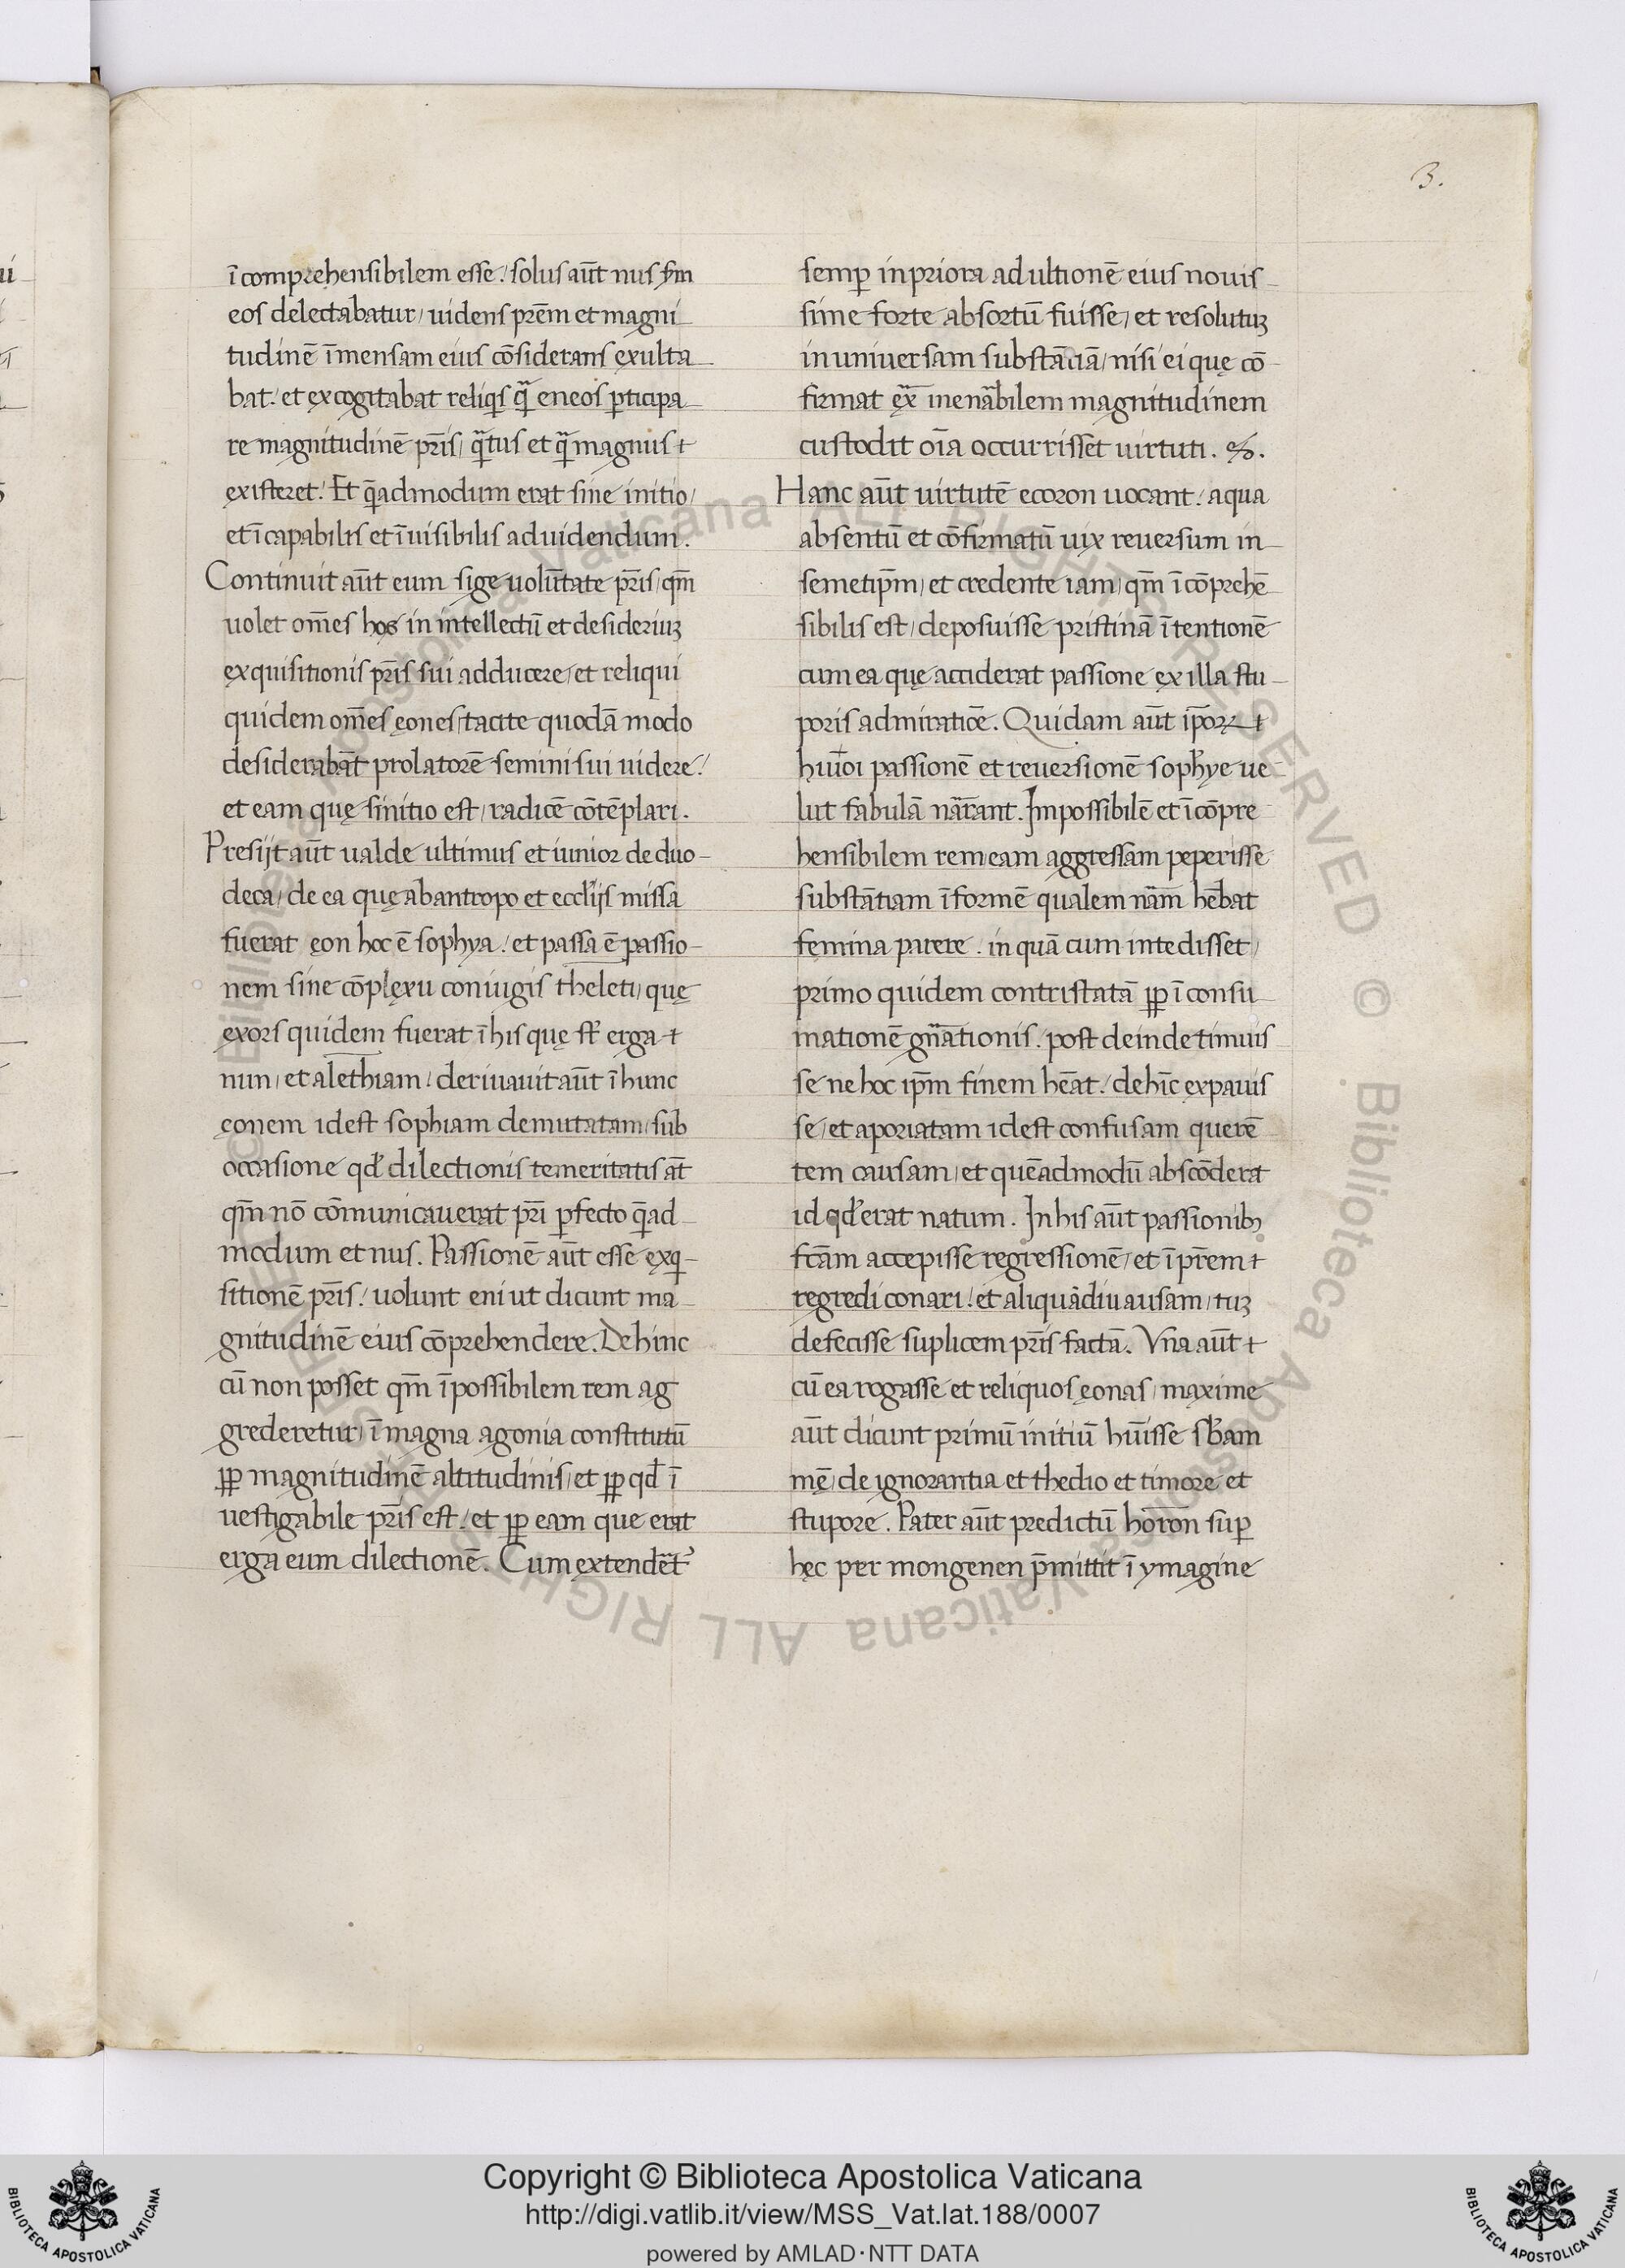 3.
ī comprehensibilem esse. solus aūt nus sm̄
eos delectabatur, uidens prēm et magni
tudinē īmensam eius cōsiderans exulta
bat. et excogitabat reliqis q̄ eneos pticipa
re magnitudinē pr̄is, q̄tus et q̄ magnus
existeret. Et q̄admodum erat sine initio,
et īcapabilis et īuisibilis ad uidendum.
Continuit aūt eum sige uolūtate pr̄is, qm̄
uolet om̄es hos in intellectū et desideriuʒ
exquisitionis pr̄is sui adducere, et reliqui
quidem om̄es ęones, tacite quodā modo
desiderabāt prolatorē semini sui uidere.
et eam quę sinitio est, radicē cōtēplari.
Presijt aūt ualde ultimus et iunior de duo
deca, de ea quę ab antropo et ecclijs missa
fuerat ęon hoc ē sophya. et passa ē passio
nem sine cōplexu coniugis theleti, quę
exors quidem fuerat ī his quę st̄ erga
nun, et alethiam. deriuauit aūt ī hunc
ęonem idest sophiam demutatam, sub
occasione qd̄ dilectionis temeritatis aūt
qm̄ nō cōmunicauerat pr̄i pfecto q̄ad
modum et nus. Passionē aūt esse exq
sitionē pr̄is. uolunt eni ut dicunt ma
gnitudinē eius cōprehendere. Dehinc
cū non posset qm̄ īpossibilem rem ag
grederetur, ī magna agonia constitutū
pp magnitudinē altitudinis, et pp qd̄ ī
uestigabile pr̄is est, et pp eam que erat
erga eum dilectionē. Cum extendēt᾽
semp in priora ad ultionē eius nouis
sime forte absortū fuisse, et resolutuʒ
in uniuersam substāciā, nisi ei quę cō
firmat ex̄ inenābilem magnitudinem
custodit oīa occurrisset uirtuti.
Hanc aūt uirtutē ecoron uocant. a qua
absentū et cōfirmatū uix reuersum in
semetip̄m, et credente iam, qm̄ ī cōprehē
sibilis est, deposuisse pristinā ītentionē
cum ea quę acciderat passione ex illa stu
poris admiratiōe. Quidam aūt ip̄oꝝ
huīoi passionē et reuersionē sophye ue
lut fabulā nārant. Impossibilē et īcōpre
hensibilem rem eam aggressam peperisse
substātiam īformē qualem nām hēbat
femina parere. in quā cum intedisset,
primo quidem contristatā pp ī consu
mationē gn̄ationis. post deinde timuis
se ne hoc ip̄m finem hēat. dehīc expauis
se, et aporiatam idest confusam querē
tem causam, et quēadmodū abscōderat
id qd̄ erat natum. In his aūt passionibꝫ
fc̄am accepisse regressionē, et ī prēm
regredi conari. et aliquādiu ausam, tuʒ
defecisse suplicem pr̄is factā. Vna aūt
cū ea rogasse et reliquos ęonas, maxime
aūt dicunt primū initiū hūisse sb̄am
mę, de ignorantia et thedio et timore et
stupore. Pater aūt predictū hōron sup
hęc per mongenen p̄mittit ī ymagine
Copyright © Biblioteca Apostolica Vaticana
http://digi.vatlib.it/view/MSS_Vat.lat.188/0007
powered by AMLAD·NTT DATA